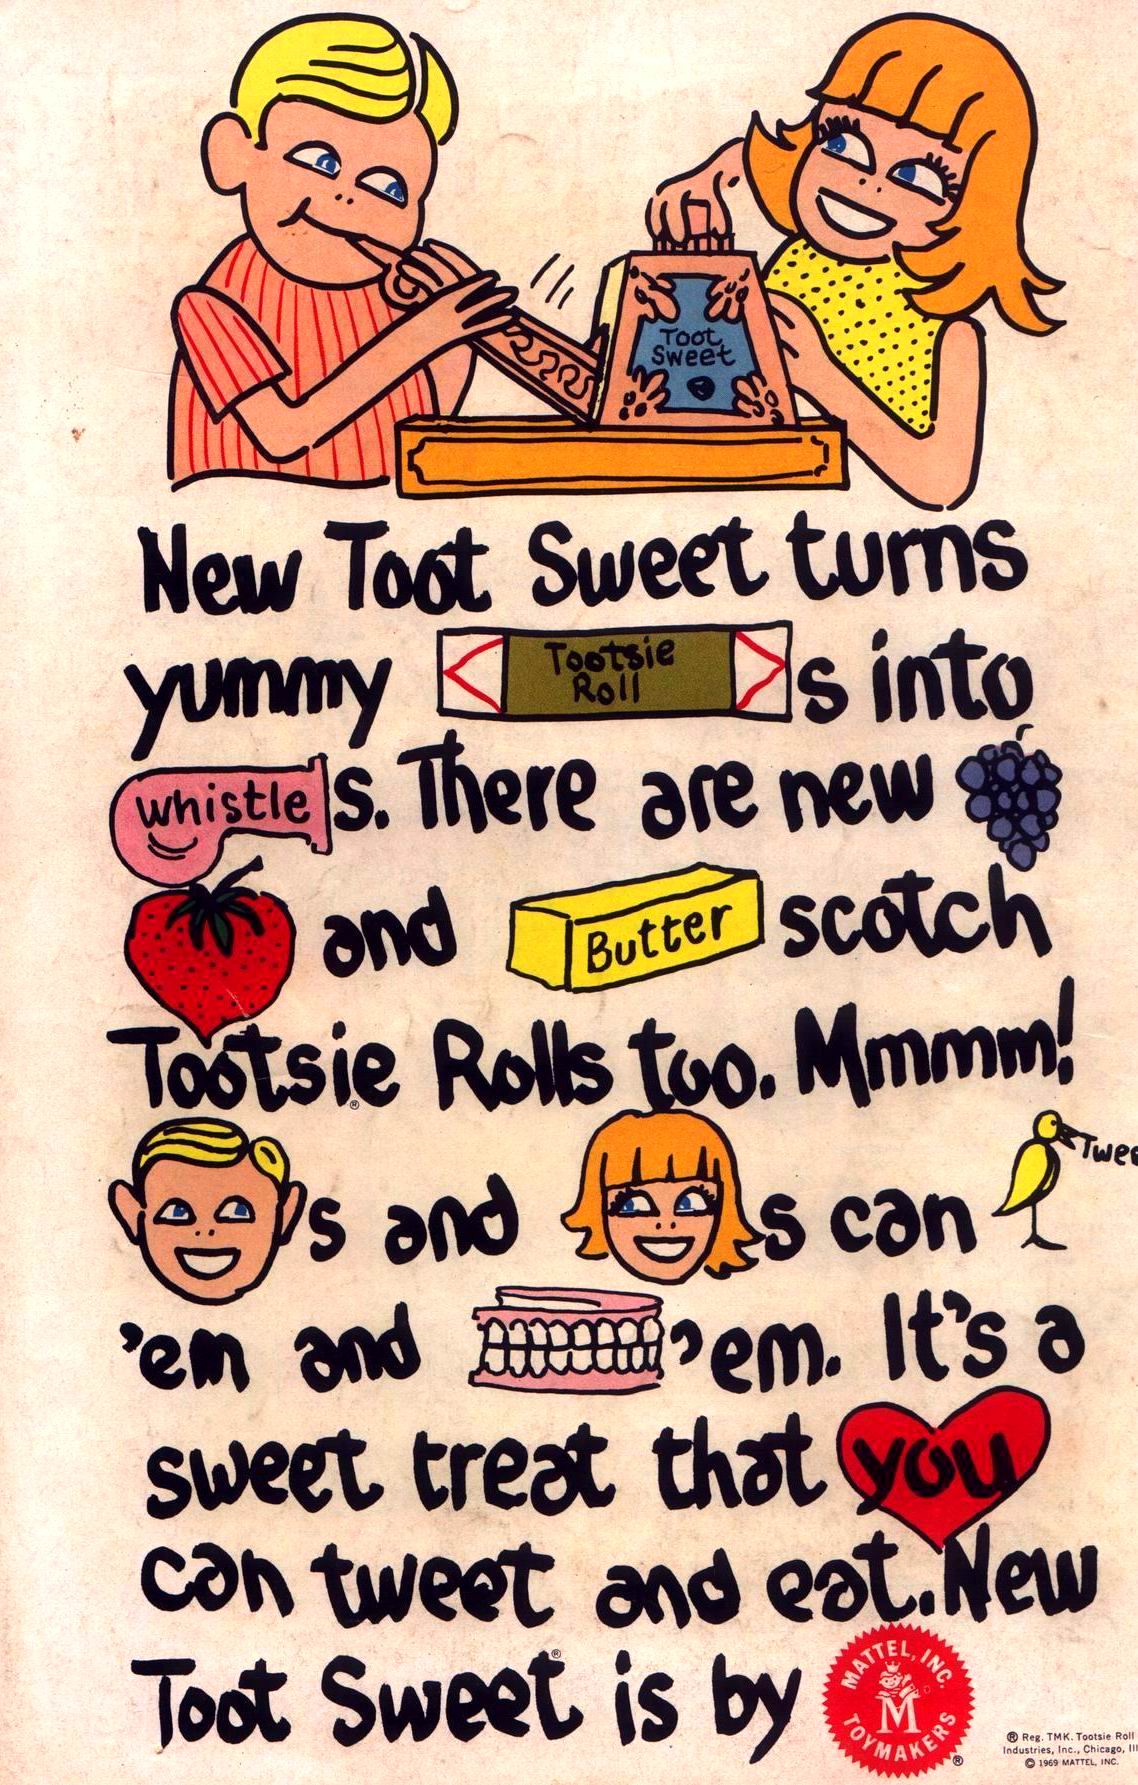 Toot
Sweet
New Toot Sweet turns
yummy Tootsie Roll s into
whistle s. There are new
and Butter scotch
Tootsie® Rolls too. Mmmm!
s and s can Twee
'em and 'em. It's a
sweet treat that you
can tweet and eat. New
Toot Sweet® is by
MATTEL, INC.
M
TOYMAKERS
®
® Reg. TMK. Tootsie Roll
Industries, Inc., Chicago, Ill
© 1969 MATTEL, INC.